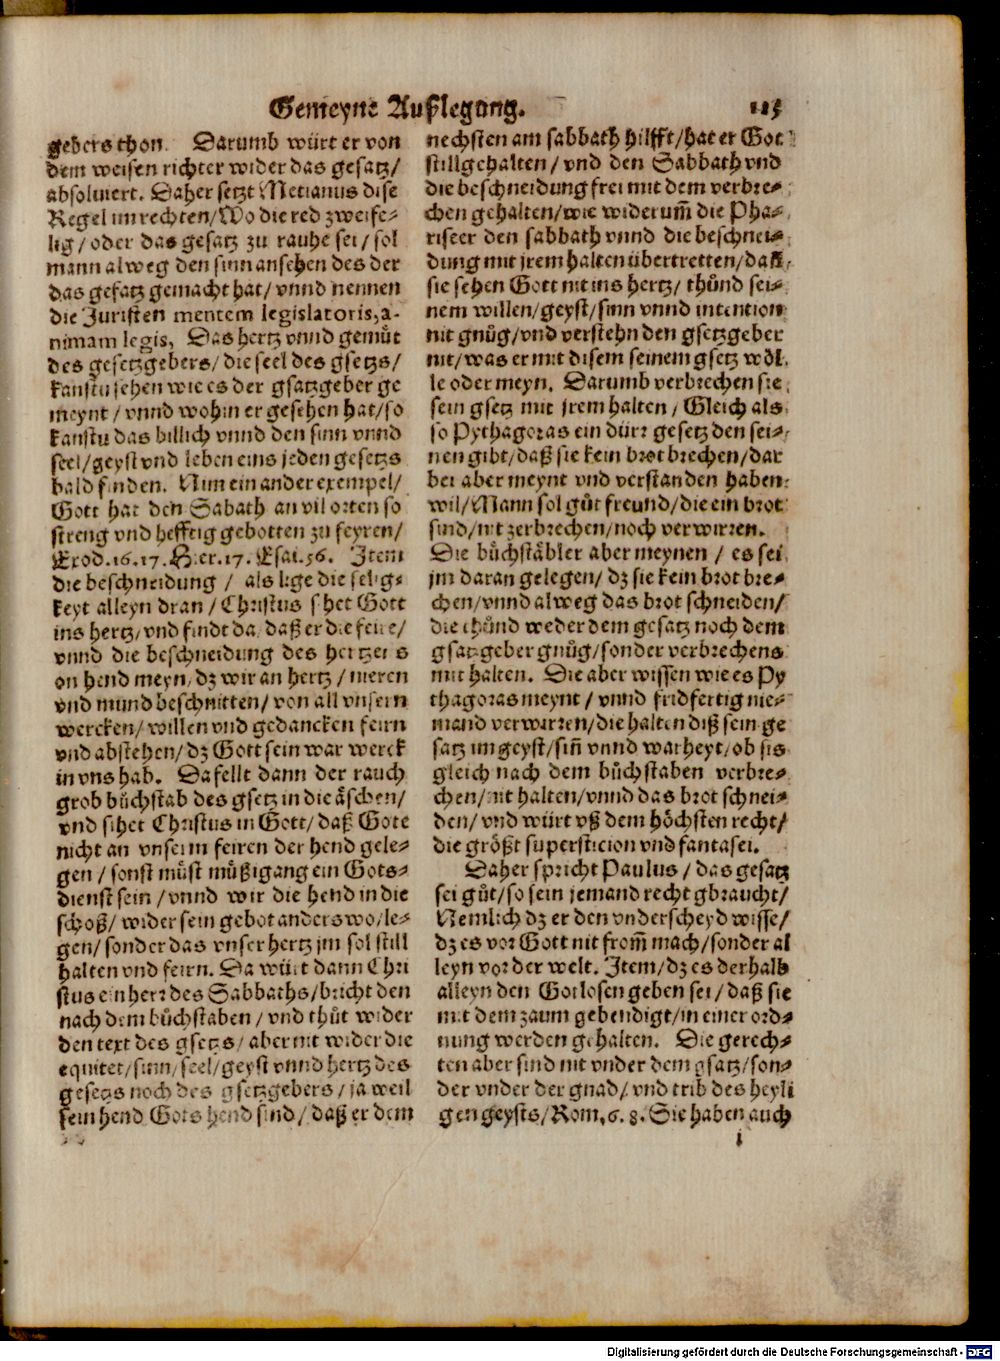 Gemeyne Außlegung. 125
gebers thon. Darumb würt er von
dem weisen richter wider das gesatz/
absoluiert. Daher setzt Metianus dise
Regel im rechten/Wo die red zweife⸗
lig/oder das gesatz zu rauhe sei/sol
mann alweg den sinn ansehen des der
das gesatz gemacht hat/vnnd nennen
die Juristen mentem legislatoris, a-
nimam legis, Das hertz vnnd gemuͤt
des gesetzgebers/die seel des gsetzs/
kanstu sehen wie es der gsatzgeber ge
meynt/vnnd wohin er gesehen hat/so
kanstu das billich vnnd den sinn vnnd
seel/geyst vnd leben eins jeden gesetzs
bald finden. Nim ein ander exempel/
Gott hat den Sabath an vil orten so
streng vnd hefftig gebotten zu feyren/
Exod.16.17. Hier.17. Esai.56. Item
die beschneidung/als lige die selig⸗
keyt alleyn dran/Christus sihet Gott
ins hertz/vnd findt da daß er die feire/
vnnd die beschneidung des hertzens
on hend meyn/dz wir an hertz/nieren
vnd mund beschnitten/von all vnsern
wercken/willen vnd gedancken feirn
vnd abstehen/dz Gott sein war werck
in vns hab. Da fellt dann der rauch
grob buͦchstab des gsetz in die aͤschen/
vnd sihet Christus in Gott/daß Gote
nicht an vnserm feiren der hend gele⸗
gen/sonst muͤst muͤßigang ein Gots⸗
dienst sein/vnnd wir die hend in die
schoß/wider sein gebot anderswo/le⸗
gen/sonder das vnser hertz jm sol still
halten vnd feirn. Da würt dann Chri
stus ein herr des Sabbaths/bricht den
nach dem buͦchstaben/vnd thuͦt wider
den text des gsetzs/aber nit wider die
equitet/sinn/seel/geyst vnnd hertz des
gesetzs noch des gsetzgebers/ja weil
kein hend Gots hend sind/daß er dem
nechsten am sabbath hilfft/hat er Got
stillgehalten/vnd den Sabbath vnd
die beschneidung frei mit dem verbre⸗
chen gehalten/wie widerum̄ die Pha⸗
riseer den sabbath vnnd die beschnei⸗
dung mit jrem halten übertretten/daß
sie sehen Gott nit ins hertz/thuͦnd sei⸗
nem willen/geyst/sinn vnnd intention
nit gnuͦg/vnd verstehn den gsetzgeber
nit/was er mit disem seinem gsetz woͤl
le oder meyn. Darumb verbrechen sie
sein gsetz mit jrem halten/Gleich als
so Pythagoras ein dürr gesetz den sei⸗
nen gibt/daß sie kein brot brechen/dar
bei aber meynt vnd verstanden haben
wil/Mann sol guͦt freund/die ein brot
sind/nit zerbrechen/noch verwirren.
Die buͦchstaͤbler aber meynen/es sei
jm daran gelegen/dz sie kein brot bre⸗
chen/vnnd alweg das brot schneiden/
die thuͦnd weder dem gesatz noch dem
gsatzgeber gnuͦg/sonder verbrechens
mit halten. Die aber wissen wie es Py
thagoras meynt/vnnd fridfertig nie⸗
mand verwirren/die halten diß sein ge
satz im geyst/sin̄ vnnd warheyt/ob sis
gleich nach dem buͦchstaben verbre⸗
chen/nit halten/vnnd das brot schnei⸗
den/vnd würt vß dem hoͤchsten recht/
die groͤßt supersticion vnd fantasei.
Daher spricht Paulus/das gesatz
sei guͦt/so sein jemand recht gbraucht/
Nemlich dz er den vnderscheyd wisse/
dz es vor Gott nit from̄ mach/sonder al
leyn vor der welt. Item/dz es derhalb
alleyn den Gotlosen geben sei/daß sie
mit dem zaum gebendigt/in einer ord⸗
nung werden gehalten. Die gerech⸗
ten aber sind nit vnder dem gsatz/son⸗
der vnder der gnad/vnd trib des heyli
gen geysts/Rom.6.8. Sie haben auch
i
Digitalisierung gefördert durch die Deutsche Forschungsgemeinschaft - DFG